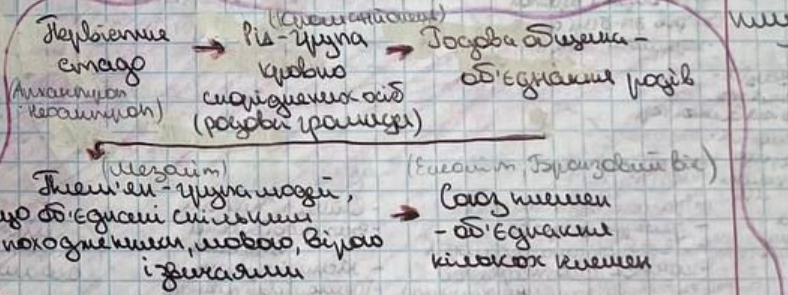 Первісне
стадо
(Архантроп
і неоантроп)
→ Рід - група
кровно
споріднених осіб
(родові громади)
→ Родова община -
об'єднання родів
(Мезоліт)
Плем'я - група людей,
що об'єднані спільним
походженням, мовою, вірою
і звичаями
(Енеоліт, Бронзовий вік)
→ Союз племен
- об'єднання
кількох племен